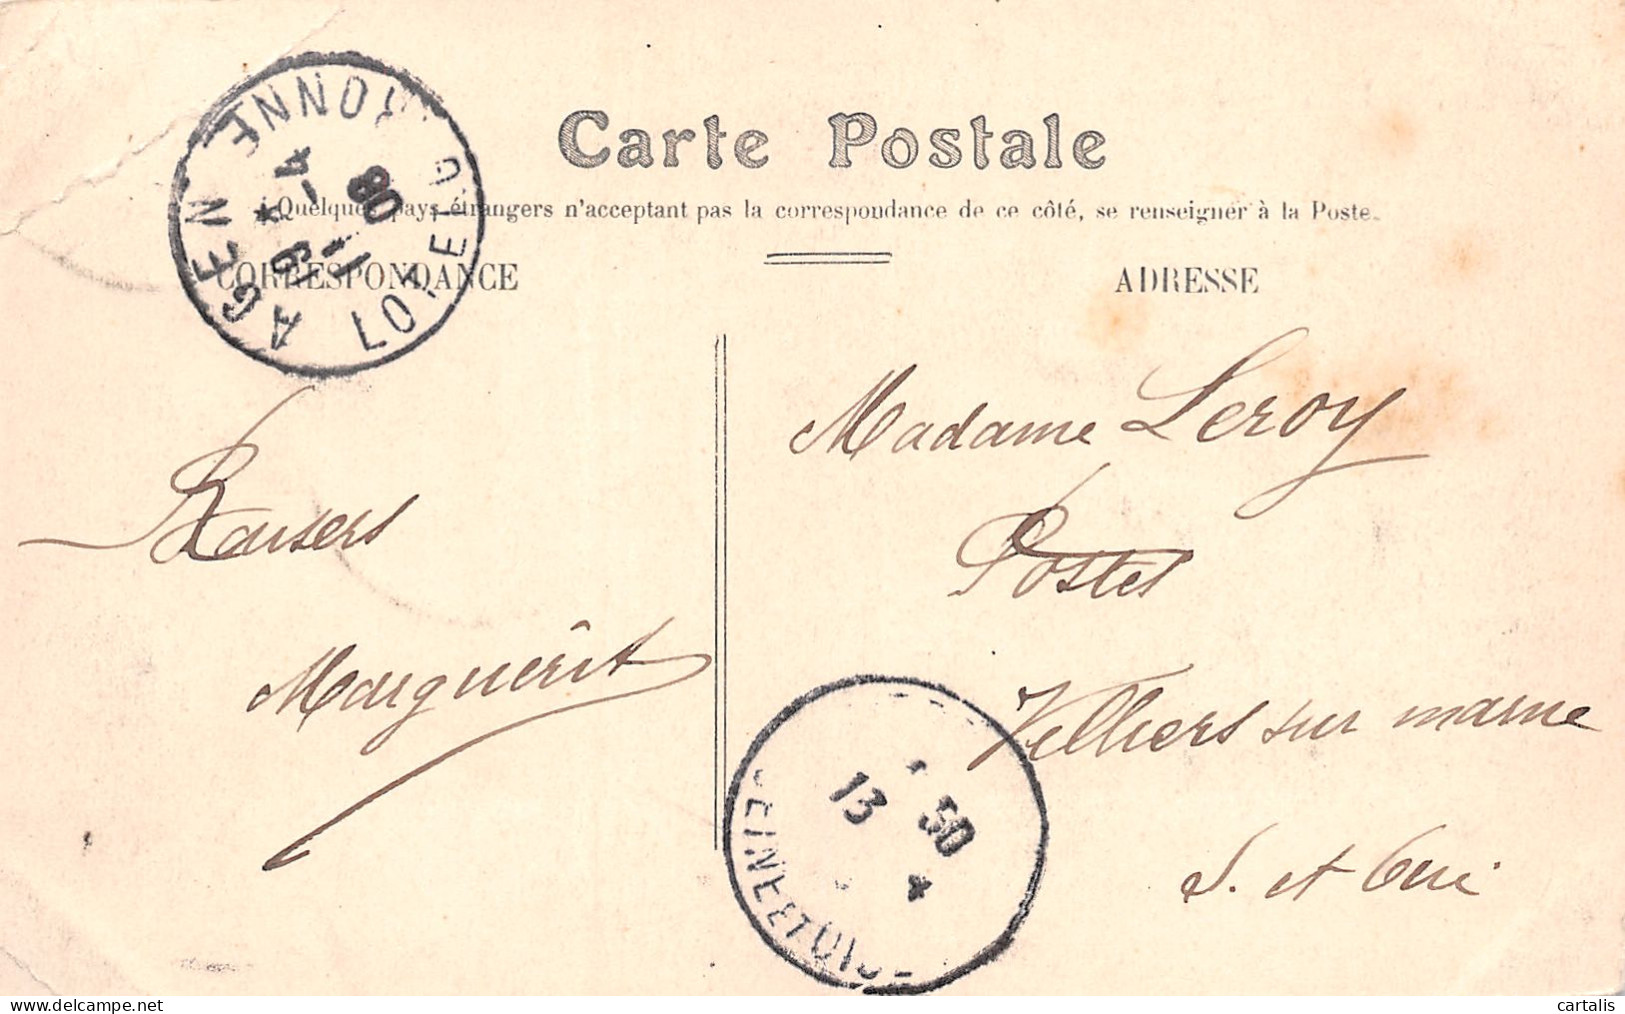 Carte Postale
Quelques pays étrangers n'acceptant pas la correspondance de ce côté, se renseigner à la Poste.
CORRESPONDANCE
ADRESSE
AGEN
LOT ET G ONNE
19
11 - 4
08
Baisers
Marguerit
Madame Leroy
Postes
Villiers sur marne
S. et Oise
13
30
SEINE ET OISE
cartalis